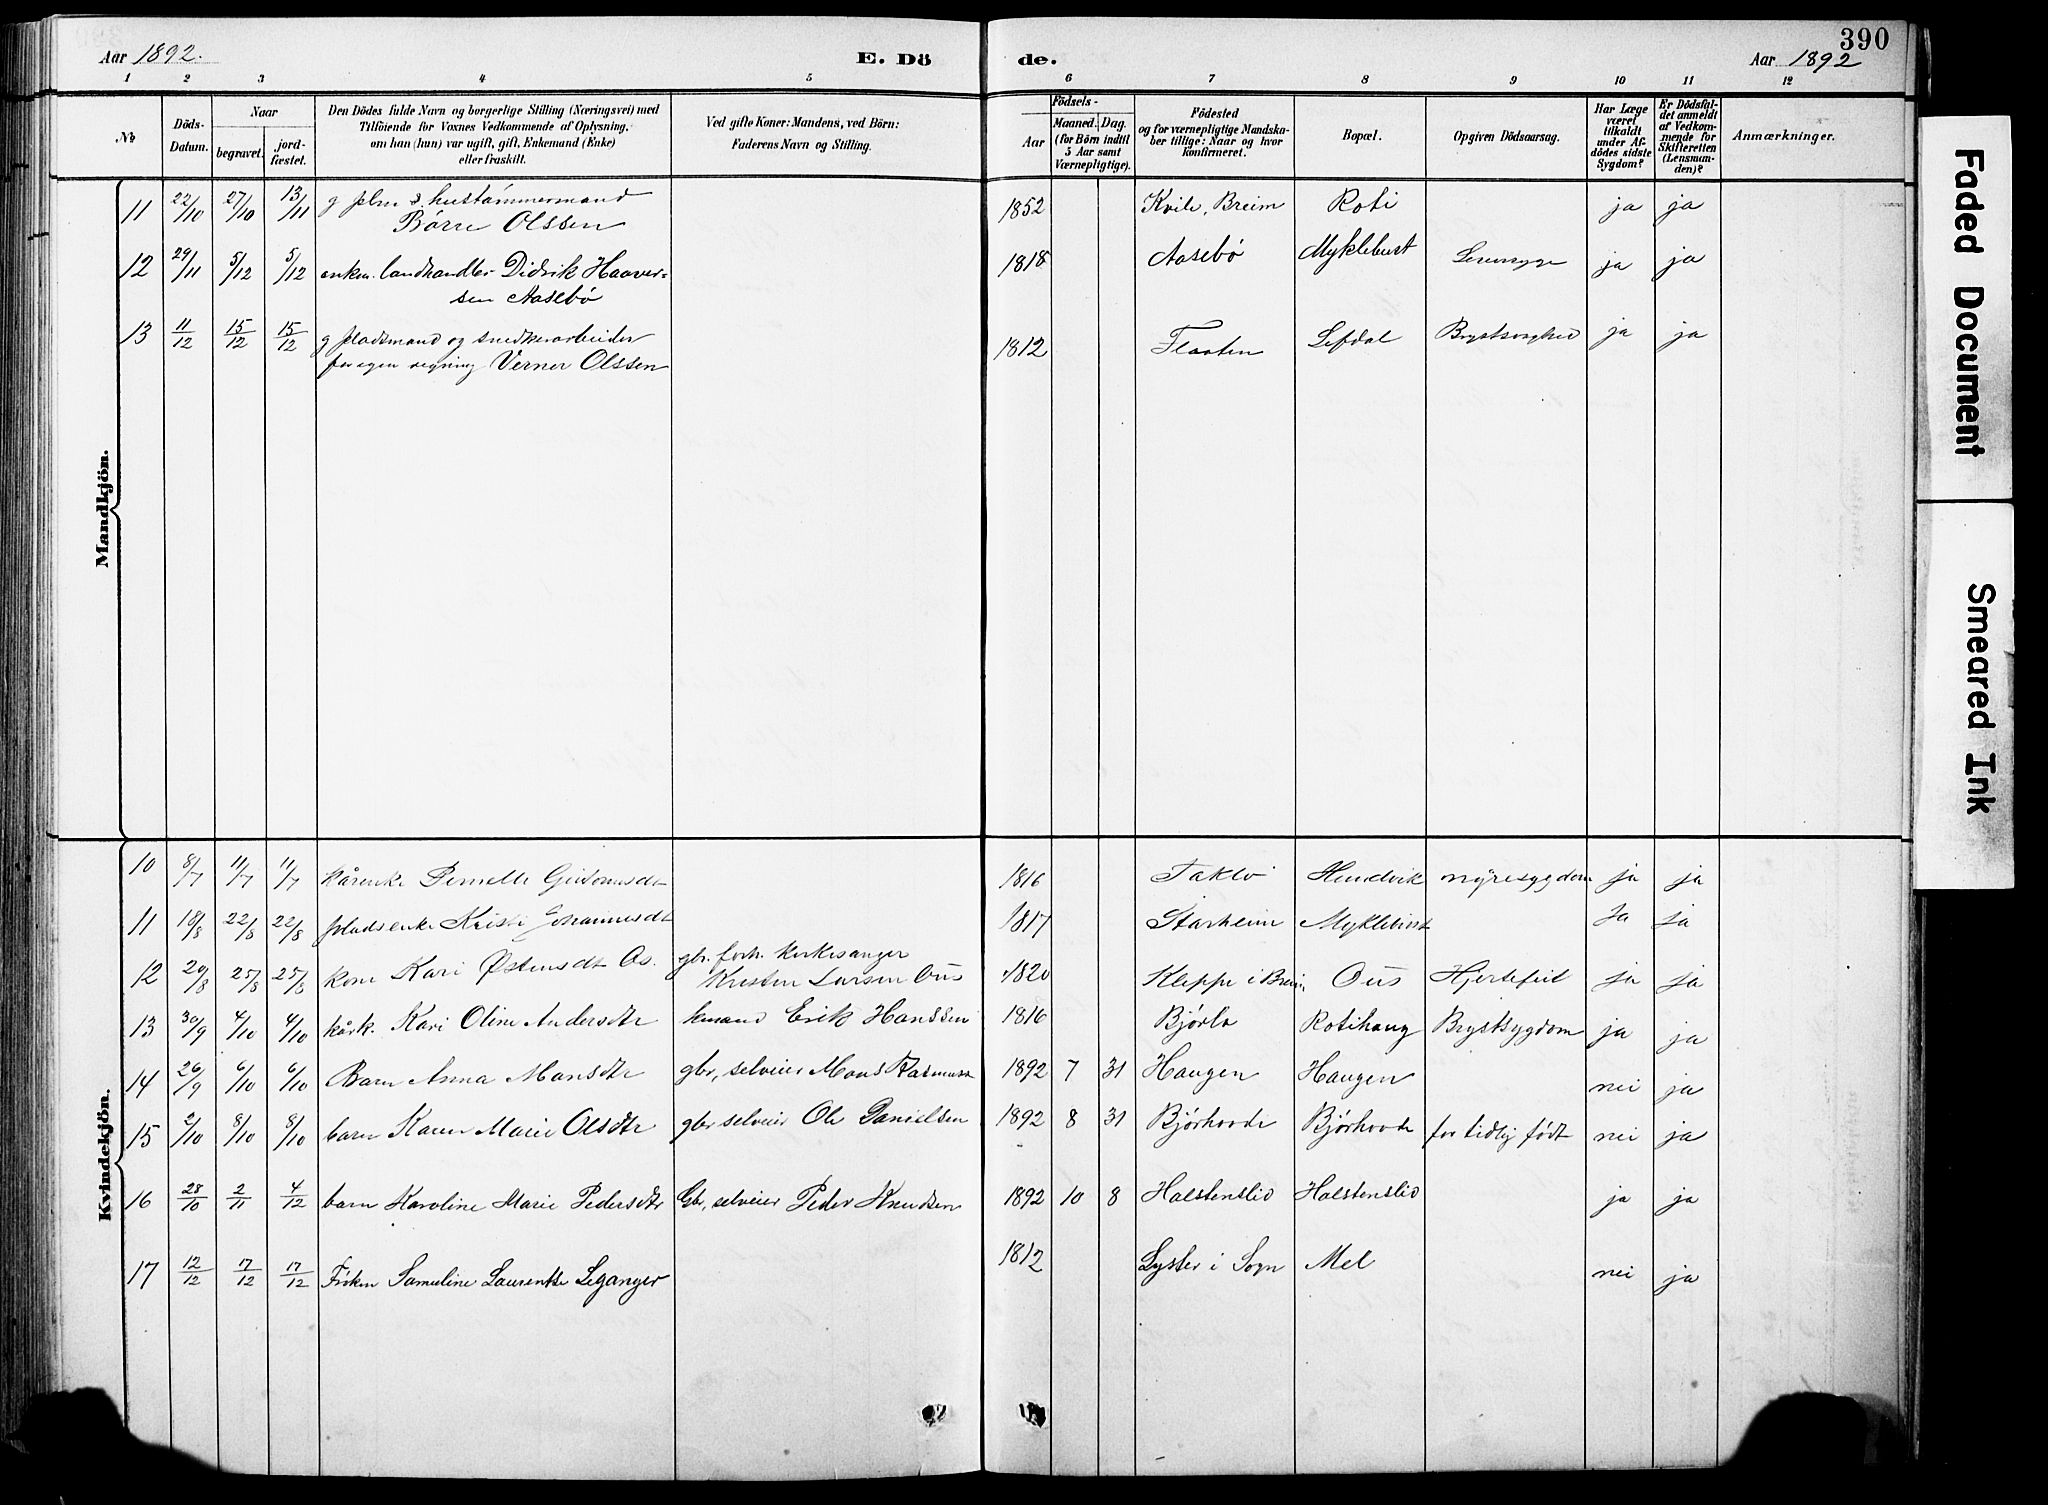 390
Aar 1892.
E. Dö de.
Aar 1892
1 2 3 4 5 6 7 8 9 10 11 12
No
Döds-Datum.
Naar
begravet.
jord-fæstet.
Den Dödes fulde Navn og borgerlige Stilling (Næringsvei) med
Tilföiende for Voxnes Vedkommende af Oplysning,
om han (hun) var ugift, gift, Enkemand (Enke)
eller fraskilt.
Ved gifte Koner: Mandens, ved Börn:
Faderens Navn og Stilling.
Födsels-
Aar
Maaned. Dag.
(for Börn indtil
5 Aar samt
Værnepligtige).
Födested
og for værnepligtige Mandska-
ber tillige: Naar og hvor
konfirmeret.
Bopæl.
Opgiven Dödsaarsag.
Har Læge
været
tilkaldt
under Af-
dödes sidste
Sygdom?
Er Dödsfal-
det anmeldt
af Vedkom-
mende for
Skifteretten
(Lensman-
den)?
Anmærkninger.
Mandkjön.
11 22/10 27/10 13/11 g plm s. hustømmermand
Børre Olssen 1852 Kvile, Breim Roti ja ja
12 29/11 5/12 5/12 enkem. landhandler Didrik Haaver-
sen Aasebø 1818 Aasebø Myklebust ja ja
13 11/12 15/12 15/12 g pladsmand og snedkerarbeider
for egen regning Verner Olssen 1812 Flaaten Lefdal ja ja
Kvindekjön.
10 8/7 11/7 11/7 kårenke Pernelle 1816 Taklo Hundvik nyresygdom ja ja
11 18/8 22/8 22/8 pladsenke Kristi Johannesdt 1817 Starheim Myklebust Ja ja
12 20/8 25/8 25/8 kone Kari Østensdt Os. gbr. forh. kirkesanger
Kristen Larsen Ous 1820 Kleppe i Breim Ous Hjertefeil ja ja
13 30/9 4/10 4/10 kårk. Kari Oline Andersdtr kmand Erik Hanssen 1816 Bjørlo Rotihaug Brystsygdom ja ja
14 26/9 6/10 6/10 Barn Anna Monsdtr gbr, selveier Mons Rasmuss 1892 7 31 Haugen Haugen nei ja
15 2/10 8/10 8/10 barn Karen Marie Olsdtr gbr selveier Ole Danielsen 1892 8 31 Bjørhovde Bjørhovde for tidlig født nei ja
16 28/10 2/11 4/12 barn Karoline Marie Pedersdtr Gbr, selveier Peder Knudsen 1892 10 8 Halstenslid Halstenslid ja ja
17 12/12 17/12 17/12 Frøken Samueline Laurentse Leganger 1812 Lyster i Sogn Mel nei ja
Faded Document
Smeared Ink